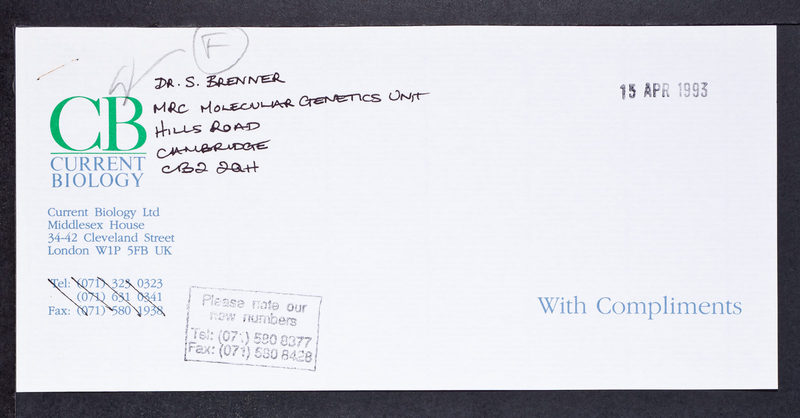 F
DR. S. BRENNER
MRC MOLECULAR GENETICS UNIT
HILLS ROAD
CAMBRIDGE
CB2 2QH
15 APR 1993
CB
CURRENT
BIOLOGY
Current Biology Ltd
Middlesex House
34-42 Cleveland Street
London W1P 5FB UK
Tel: (071) 323 0323
(071) 631 0341
Fax: (071) 580 1938
Please note our
new numbers
Tel: (071) 580 8377
Fax: (071) 580 8428
With Compliments